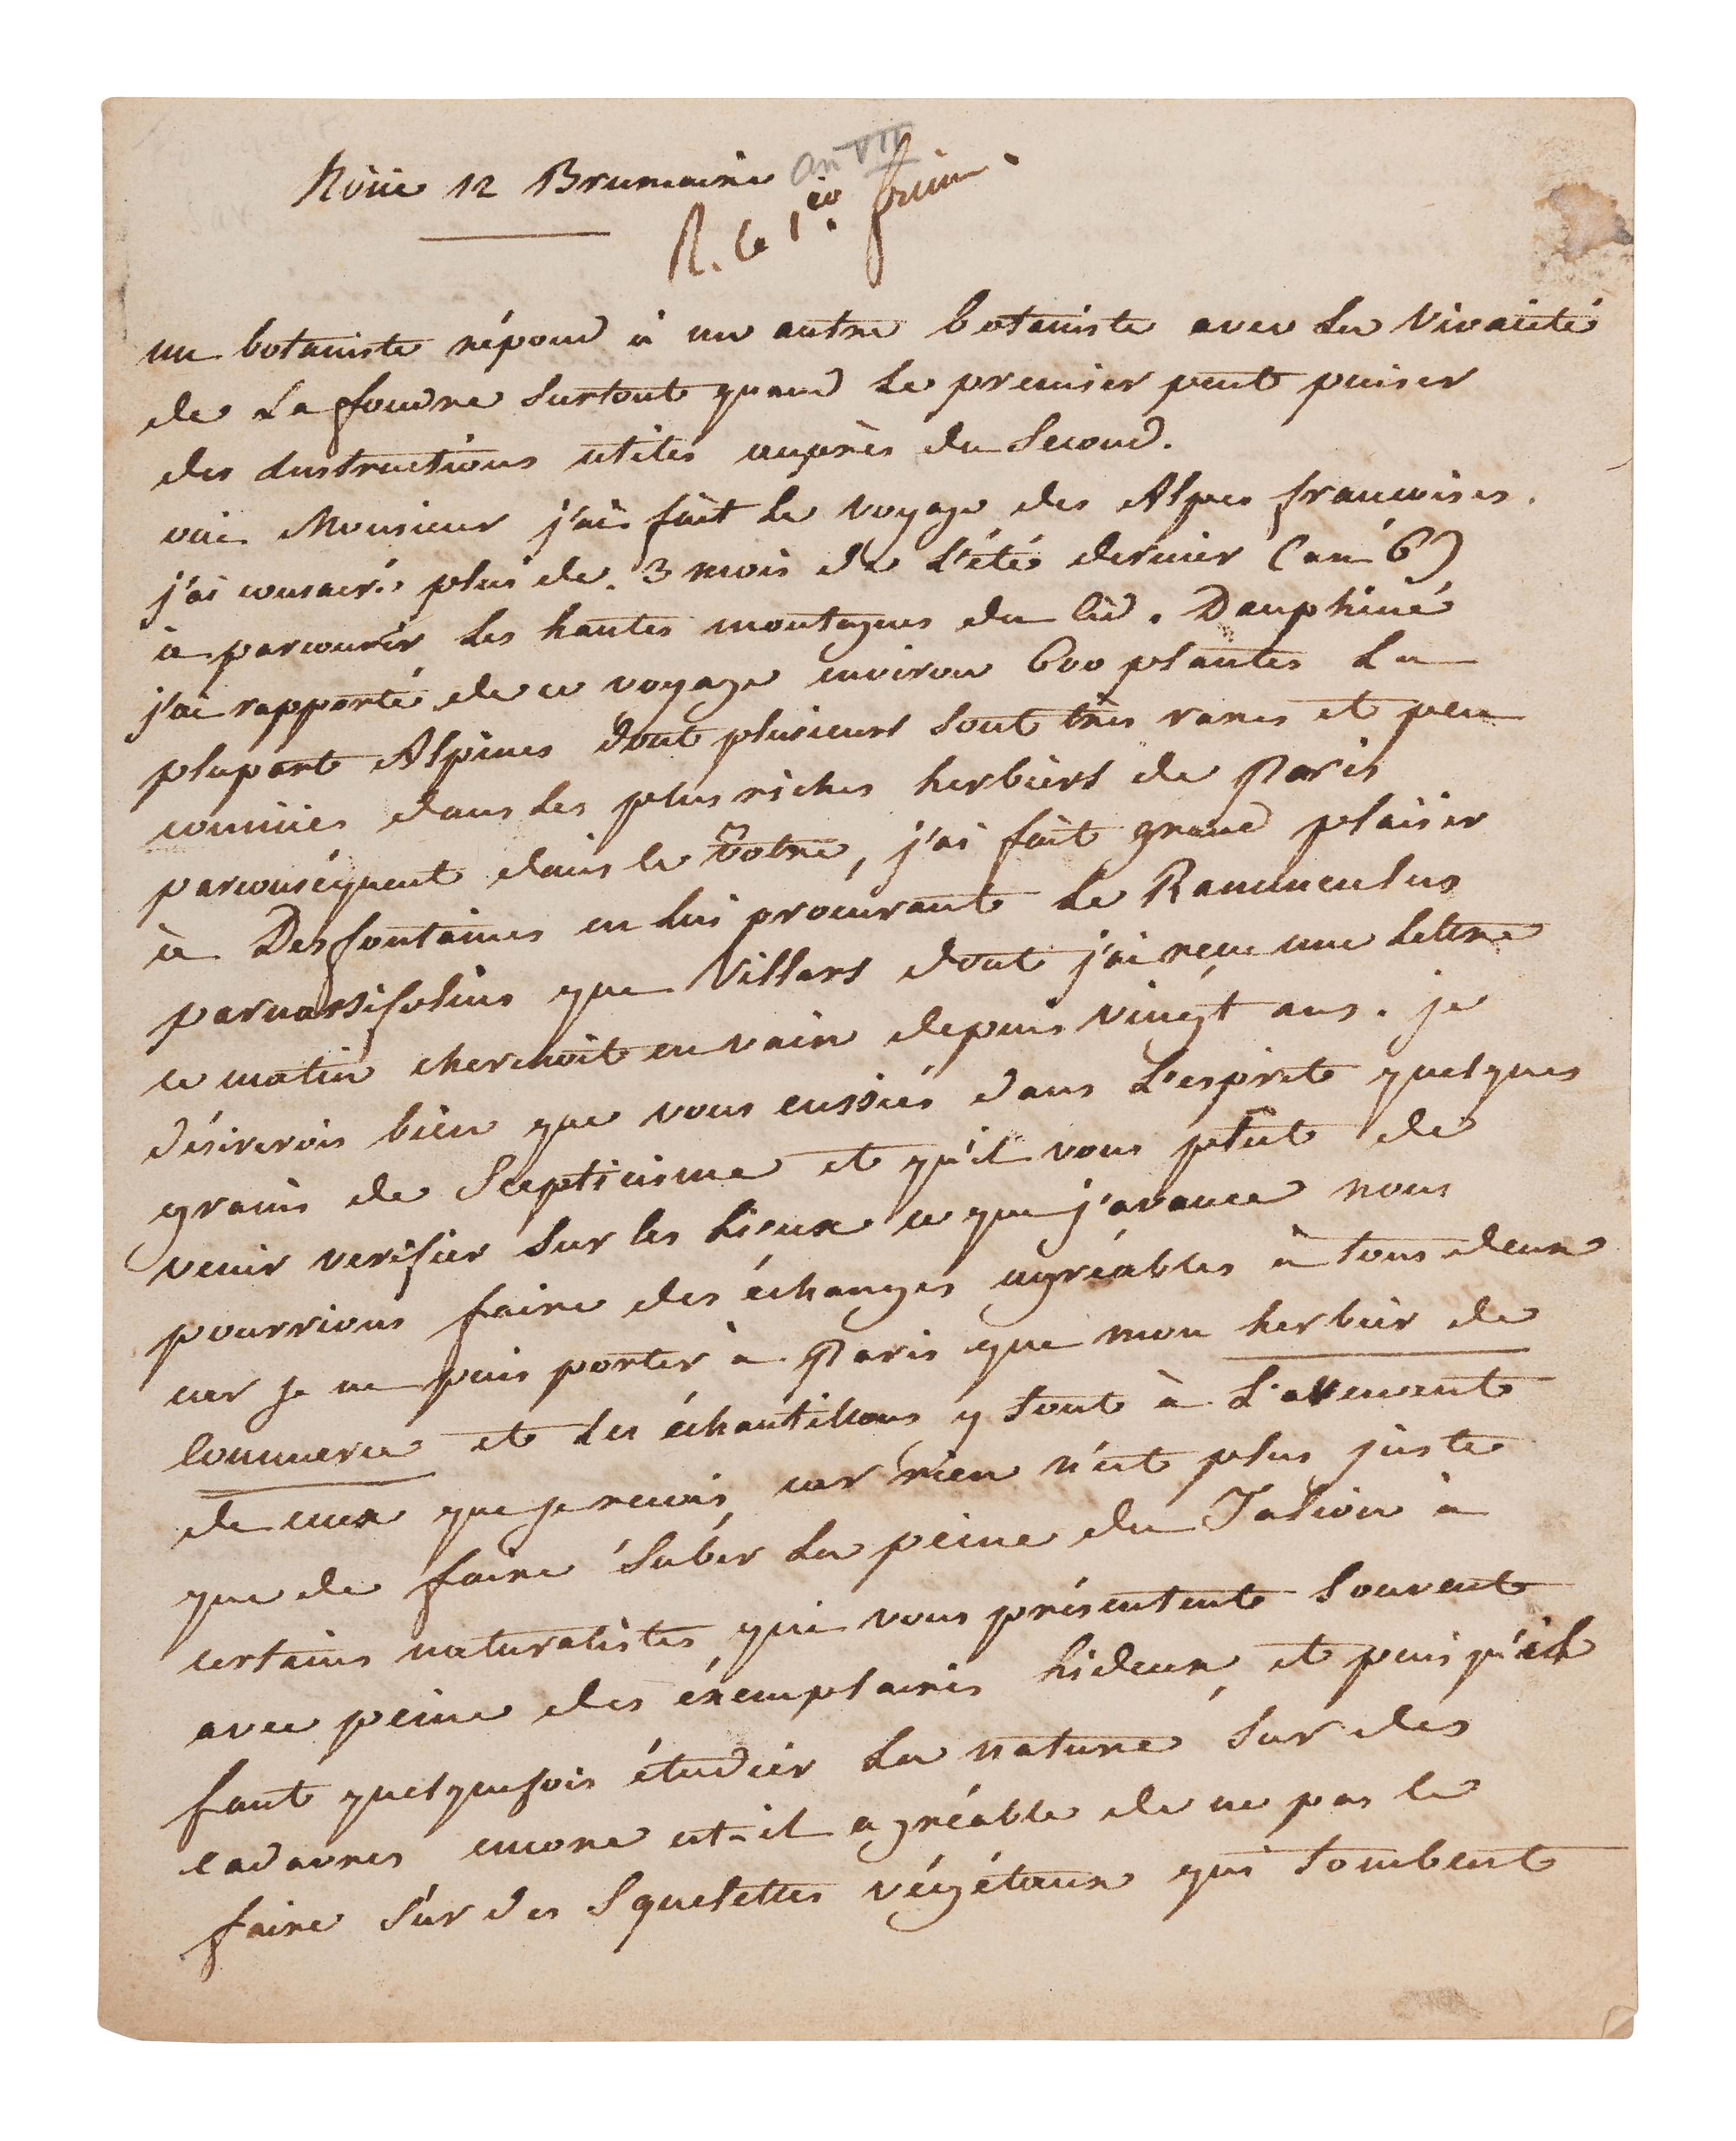 12 Brumaire an VII
R. le 1.er frim.
un botaniste répond à un autre botaniste avec la Vivacité
de La foudre Surtout quand Le premier peut puiser
des Instructions utiles auprès du Second.
oui Monsieur j'ai fait Le Voyage des Alpes francoises.
j'ai consacré plus de 3 mois de L'été dernier (an 6)
à parcourir Les hautes montagnes du Cid. Dauphiné
j'ai rapporté de ce voyage environ 600 plantes La
plupart Alpines dont plusieurs Sont très rares et peu
connües dans Les plus riches herbiers de Paris
parconséquent dans le vôtre, j'ai fait grand plaisir
à Desfontaines en Lui procurant Le Ranunculus
parnassifolius que Villars dont j'ai reçu une Lettre
ce matin cherchoit en vain depuis vingt ans. je
désirerois bien que vous eussiés dans L'esprit quelques
grains de Scepticisme et qu'il vous plût de
venir verifier Sur les Lieux ce que j'avance nous
pourrions faire des échanges agréables à tous deux
car je ne puis porter à Paris que mon herbier de
Commerce et Les échantillons y Sont à L'avenant
de ceux que je reçois, car rien n'est plus juste
que de faire Subir La peine du Talion à
certains naturalistes qui vous présentent Souvent
avec peine des éxemplaires hideux, et puisqu'il
faut quelquefois étudier La nature Sur des
cadavres encore est-il agréable de ne pas le
faire Sur des Squelettes végétaux qui tombent